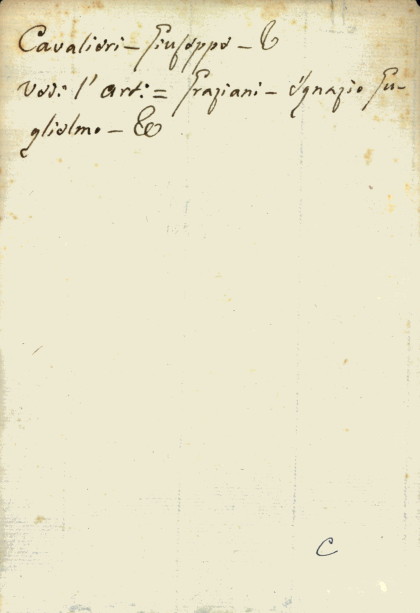 Cavalieri - Giuseppe - &
Vedi l' art: = Graziani - Ignazio Gu-
glielmo - &
C